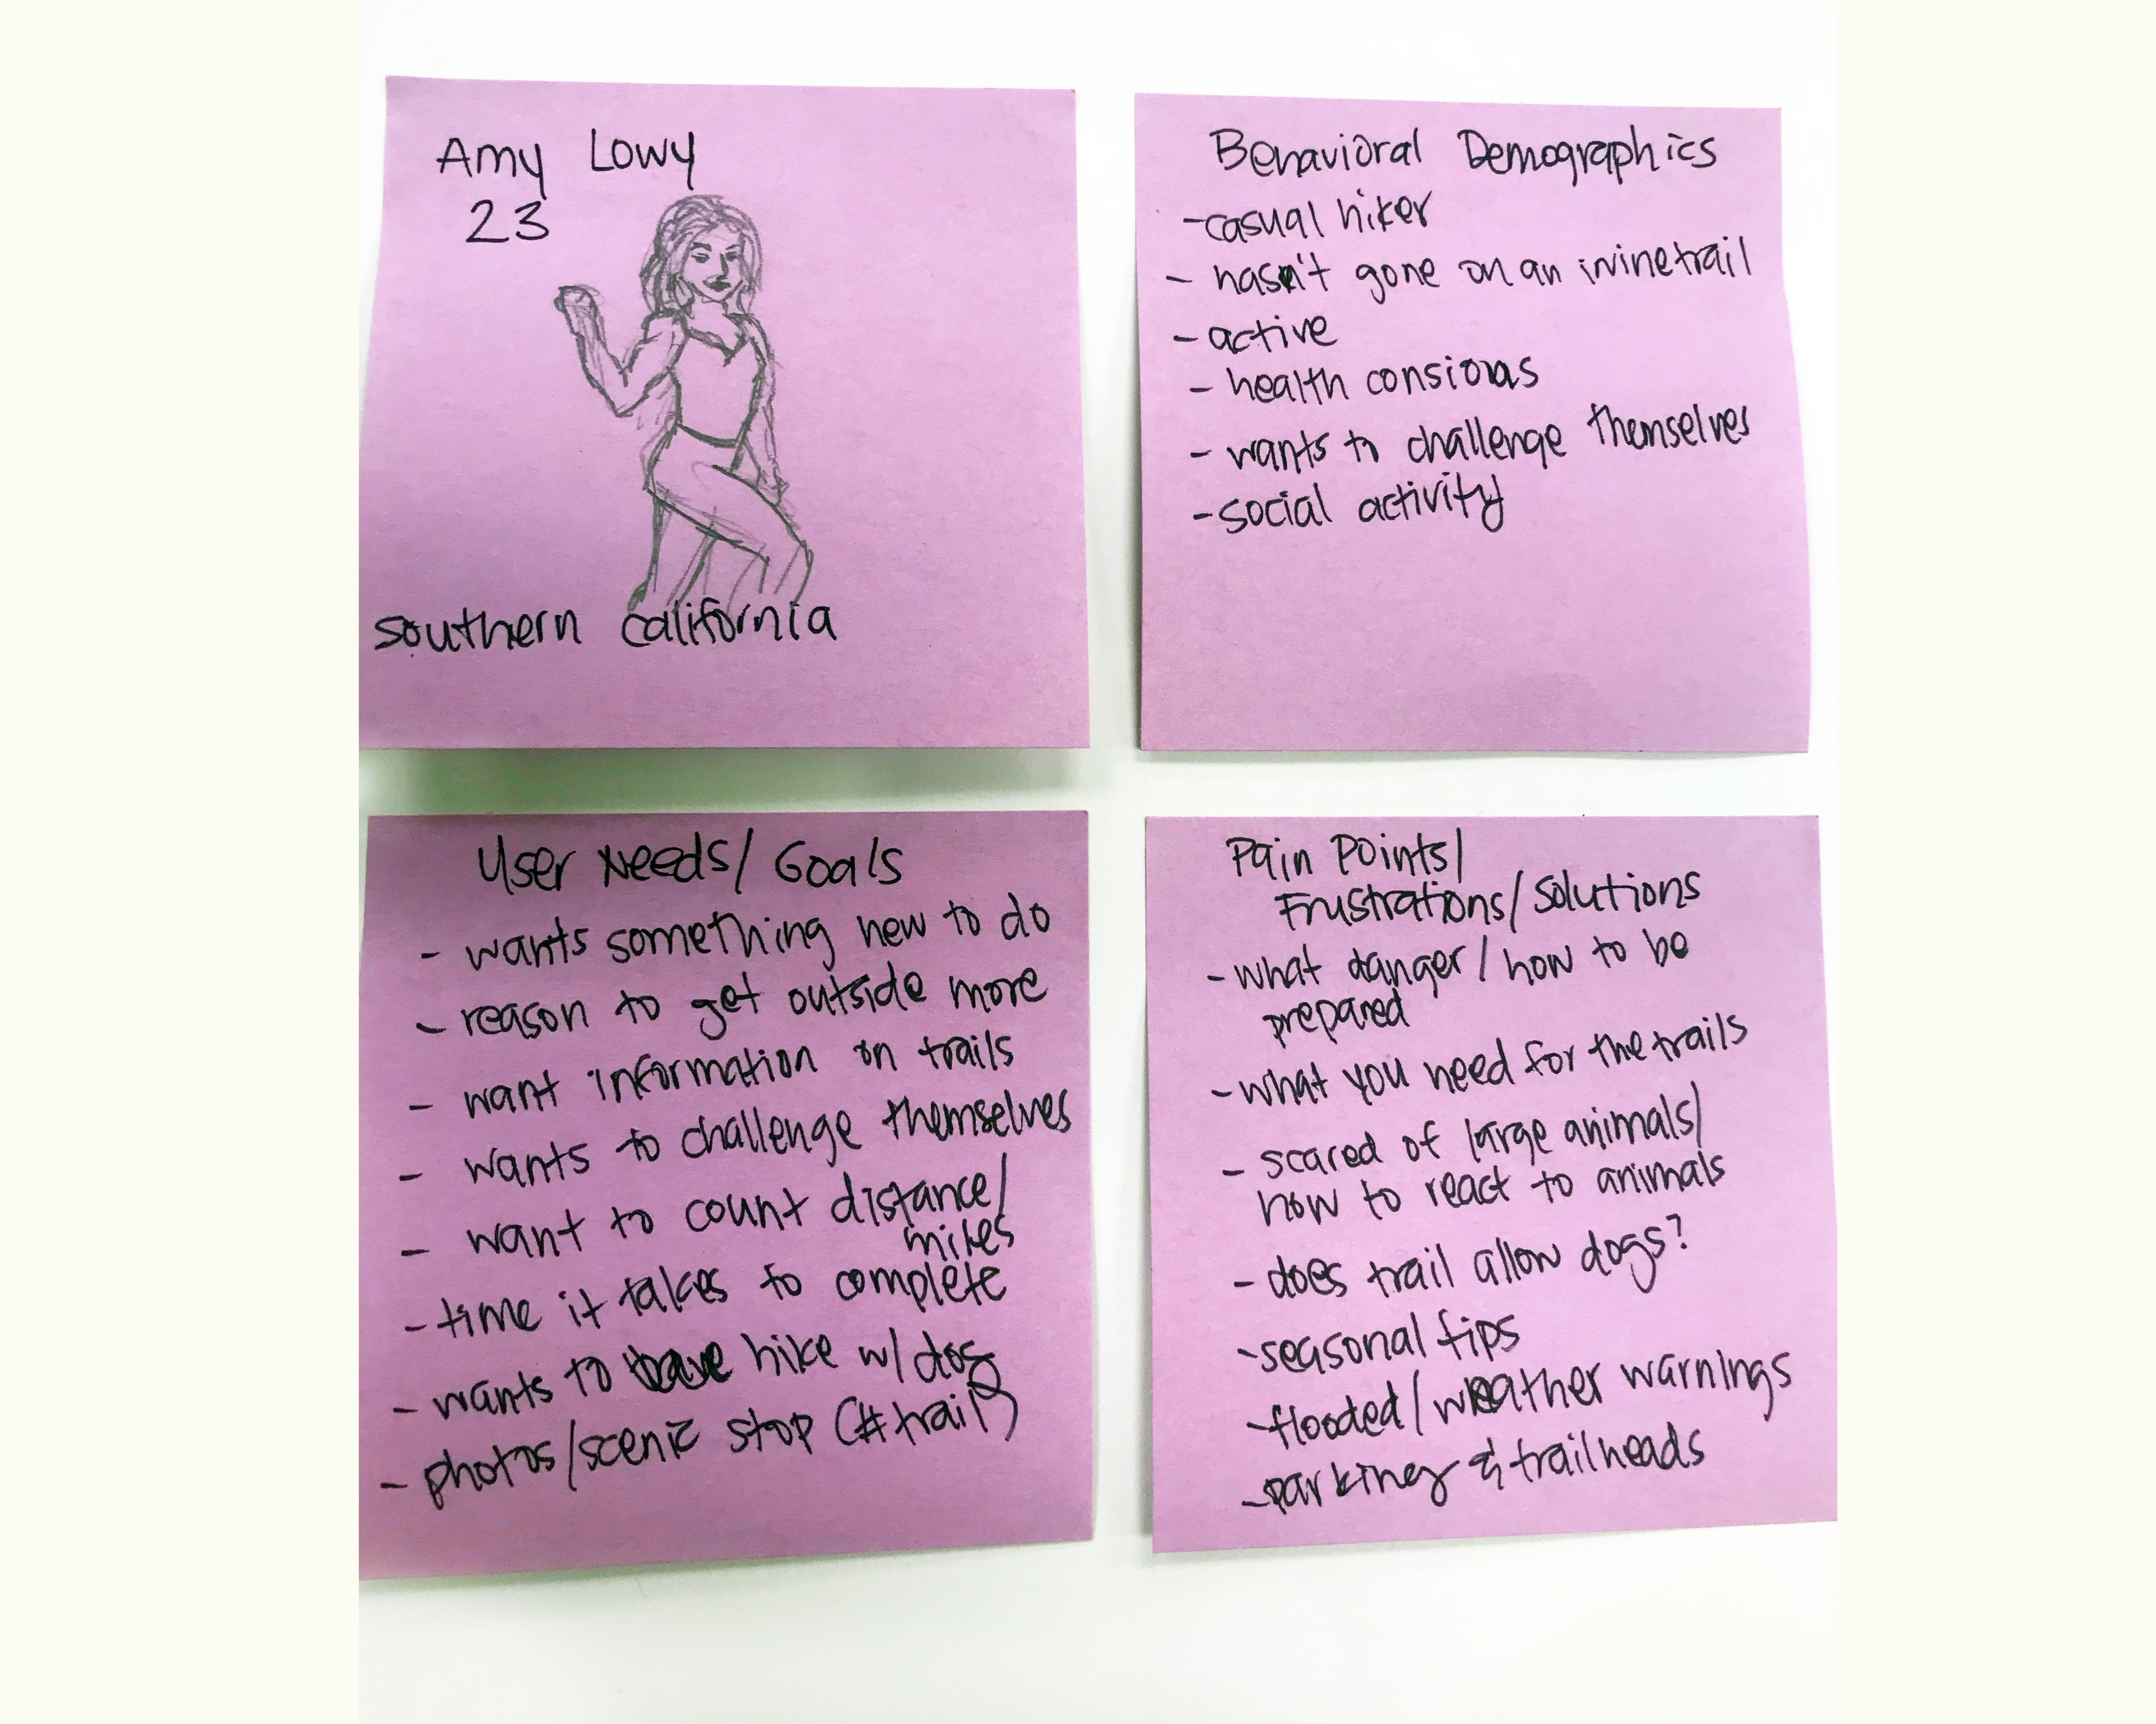 Amy Lowy
23
southern california
Behavioral Demographics
- casual hiker
- hasn't gone on an irvine trail
- active
- health consious
- wants to challenge themselves
- social activity
User Needs/ Goals
- wants something new to do
- reason to get outside more
- want information on trails
- wants to challenge themselves
- want to count distance/
miles
- time it takes to complete
- wants to hike w/ dog
- photos/scenic stop (# trail)
Pain Points/
Frustrations/ Solutions
- what danger / how to be
prepared
- what you need for the trails
- scared of large animals/
how to react to animals
- does trail allow dogs?
- seasonal tips
- flooded/ weather warnings
- parking & trailheads